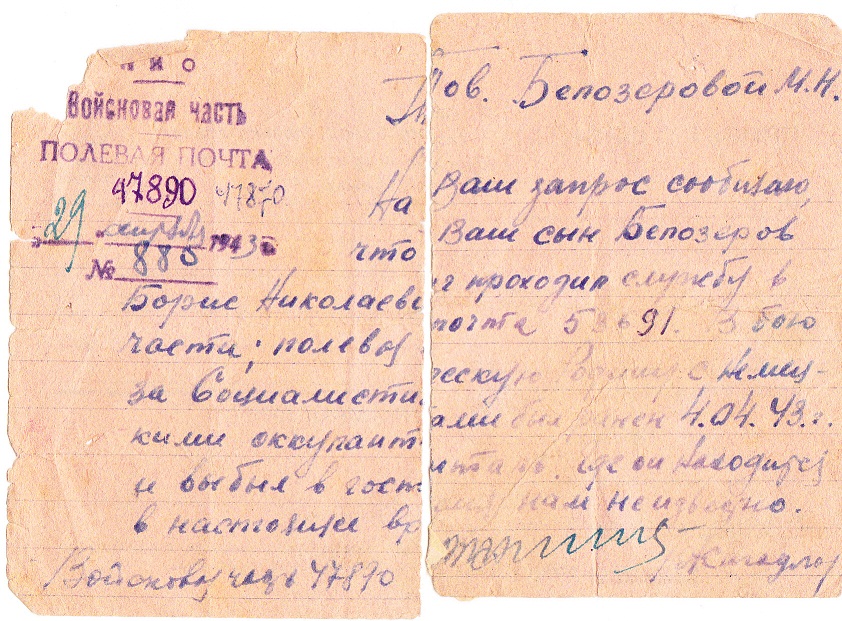 Н И О
Войсковая часть
ПОЛЕВАЯ ПОЧТА
47890 47870
"29" апреля 1943 г.
№ 885
Тов. Белозеровой М.Н.
На Ваш запрос сообщаю,
что Ваш сын Белозеров
Борис Николаевич проходил службу в
части; полевая почта 58691. в бою
за Социалистическую Родину с немец-
кими оккупантами был ранен 4.04.43.г.
и выбыл в госпиталь. где он находится
в настоящее время нам неизвестно.
Войсковая часть 47890